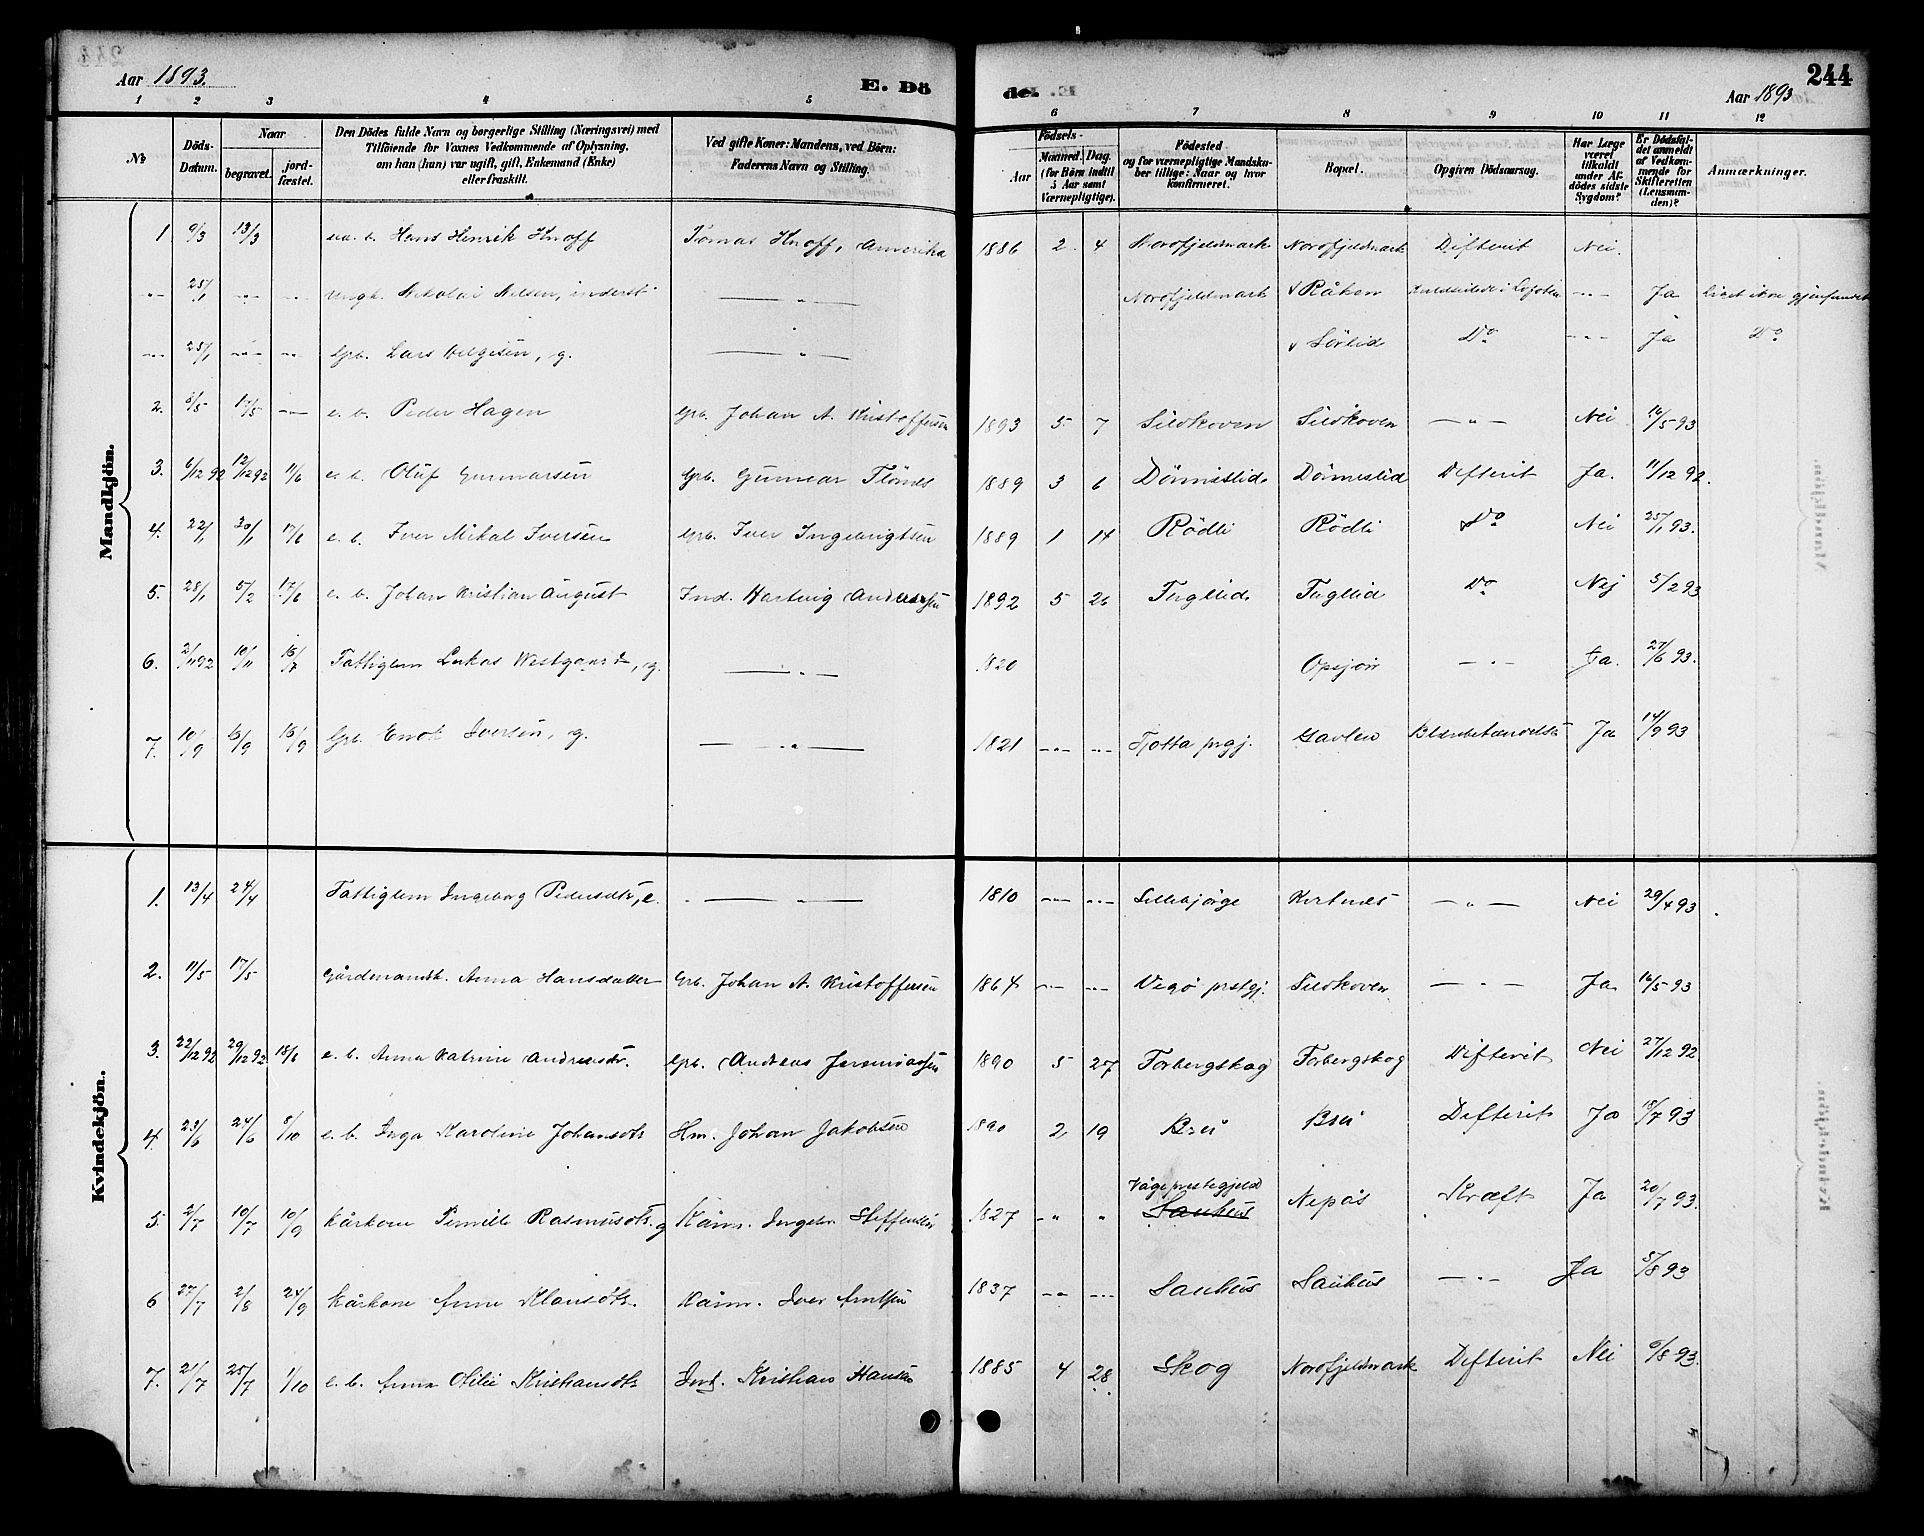 Aar 1893. E. Dö de. 244
Aar 1893
1 2 3 4 5 6 7 8 9 10 11 12
No. Döds-Datum. Naar begravet. jordfæstet. Den Dödes fulde Navn og borgerlige Stilling (Næringsvei) med Tilföiende for Voxnes Vedkommende af Oplysning, om han (hun) var ugift, gift, Enkemand (Enke) eller fraskilt. Ved gifte Koner: Mandens, ved Börn: Faderens Navn og Stilling. Födsels- Aar Maaned. Dag. (for Börn indtil 5 Aar samt Værnepligtige). Födested og for værnepligtige Mandskaber tillige: Naar og hvor konfirmeret. Bopæl. Opgiven Dödsaarsag. Har Læge været tilkaldt under Afdödes sidste Sygdom? Er Dödsfaldet anmeldt af Vedkommende for Skifteretten (Lensmanden)? Anmærkninger.
Mandkjön.
1 9/3 13/3 Hans Henrik Knoff Tomas Knoff, Amerika 1886 2 4 Nordfjeldmark Nordfjeldmark Difterit Nei.
-"- 25/1 -"- -"- Ungk. Nikolai Nilsen, inderst — " — Nordfjeldmark v Råken i Lofoten -"- Ja Liget ikke gjenfundet
-"- 25/1 -"- -"- Grb. Lars Helgesen, g. — " — v Sörlid Do -"- Ja Do
2. 17/5 — e. b. Peder Hagen Grb. Johan A. Kristoffersen 1893 5 7 Sildkoven Sildkoven — " — Nei 16/5 93
3. 6/12 92 12/12 92 11/6 e. b. Oluf Gunnarsen Grb. Gunnar 1889 3 6 Dönneslid Dönneslid Difterit Ja. 11/12 92.
4. 22/1 30/1 17/6 e. b. Iver Mikal Iversen Grb. Iver Ingebrigtsen 1889 1 14 Rödli Rödli Do Nei 25/1 93.
5. 28/1 5/2 17/6 e. b. Johan Kristian August Ind. Hartvig Andersen 1892 5 26 Fugllid Fuglid Do Nej 5/2 93
6. 2/11 92 10/11 Fattiglem Lukas Westgaard, g. — " — 1820 Opsjön — " — Ja. 27/6 93.
7. 10/9 16/9 Grb. Enok Iversen, g. — " — 1821 -"- -"- Tjötta prgj. Gavlen Ja 14/9 93
Kvindekjön.
1. 13/4 24/4 Fattiglem Ingeborg Pedersdtr, e. — " — 1810 -"- -"- Lillebjörge — " — Nei 29/4 93
2. 11/5 17/5 Gårdmandsk. Anna Hansdatter Grb. Johan A. Kristoffersen 1864 -"- -"- Vegö prstgj. Sildkoven — " — Ja 16/5 93
3. 22/12 92 29/12 92 18/6 e. b. Anna Katrine Andreasdtr. Grb. Andreas Jeremiassen 1890 5 27 Forbergskog Forbergskog Difterit Nei 27/12 92
4. 23/6 24/6 8/10 e. b. Inga Karoline Johansdtr Hm. Johan Jakobsen 1890 2 19 Brei Brei Difterit Ja 18/7 93
5. 2/7 10/7 10/9 Kårkone Pernille Rasmusdtr. g Kårm. Ingebr Steffensen 1827 -"- " Våge prestegjeld Sauhus Nepås Kræft Ja 20/7 93.
6 27/7 2/8 24/9 Kårkone Anne Klausdtr. Kårm. Iver Arntsen 1837 -"- -"- Sauhus Sauhus — " — Ja 5/8 93
7. 21/7 25/7 1/10 e. b. Anna Otilie Kristiansdtr Ind. Kristian Hansen 1885 4 28 Skog Nordfjeldmark Difterit Nei 6/8 93.